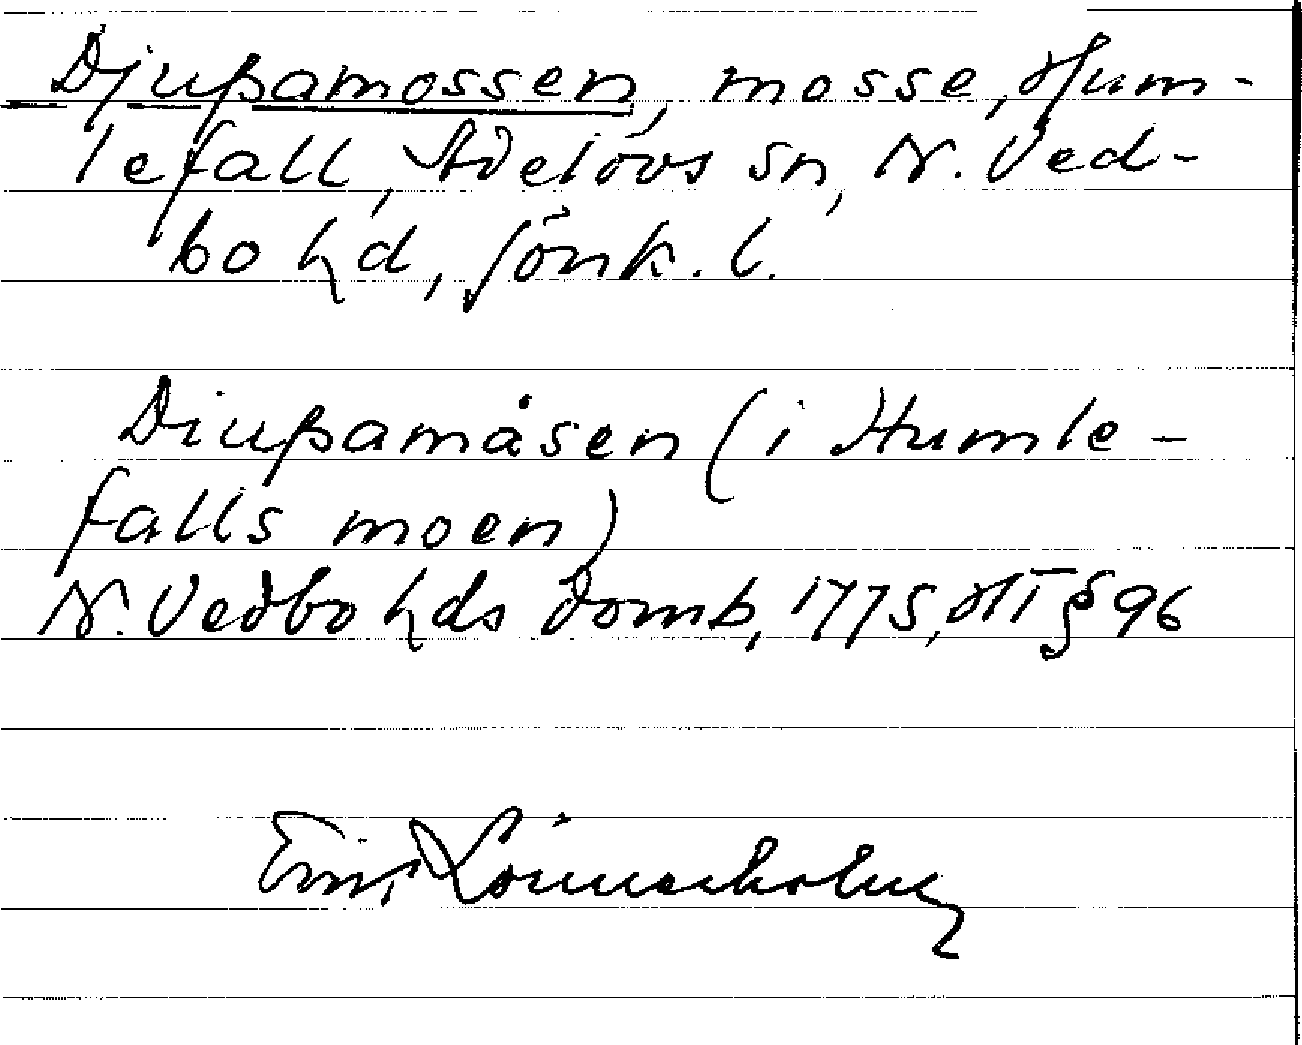 Djupamossen, mosse, Hum-
lefall, Adelövs sn, N. Ved-
bo hd, Jönk. l.
Diupamåsen (i Humle-
falls moen)
N. Vedbo hds domb, 1775, HT § 96
Einar Lönnerholm